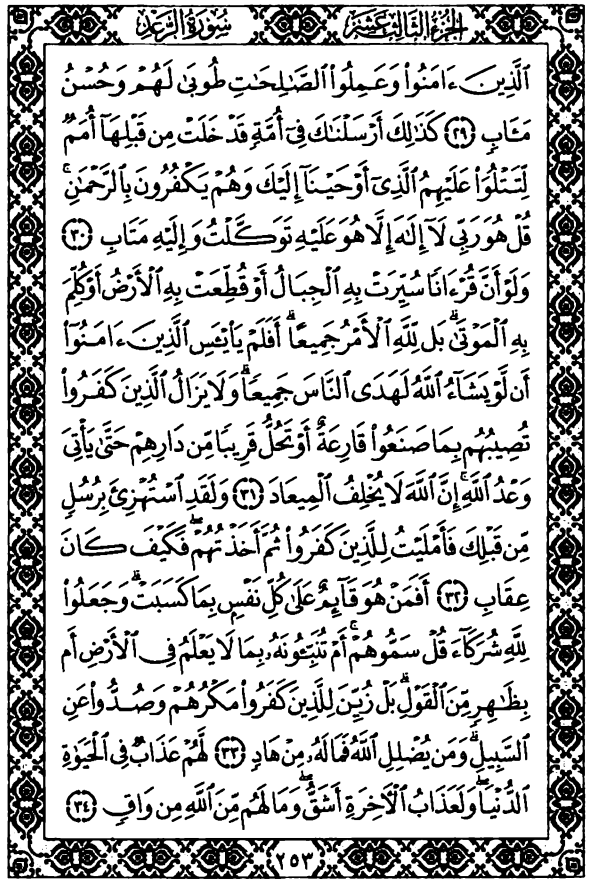 الجزء الثالث عشر سورة الرعد
ٱلَّذِينَ ءَامَنُوا۟ وَعَمِلُوا۟ ٱلصَّٰلِحَٰتِ طُوبَىٰ لَهُمْ وَحُسْنُ
مَـَٔابٍ ٢٩ كَذَٰلِكَ أَرْسَلْنَٰكَ فِىٓ أُمَّةٍ قَدْ خَلَتْ مِن قَبْلِهَآ أُمَمٌ
لِّتَتْلُوَا۟ عَلَيْهِمُ ٱلَّذِىٓ أَوْحَيْنَآ إِلَيْكَ وَهُمْ يَكْفُرُونَ بِٱلرَّحْمَٰنِ ۚ
قُلْ هُوَ رَبِّى لَآ إِلَٰهَ إِلَّا هُوَ عَلَيْهِ تَوَكَّلْتُ وَإِلَيْهِ مَتَابِ ٣٠
وَلَوْ أَنَّ قُرْءَانًا سُيِّرَتْ بِهِ ٱلْجِبَالُ أَوْ قُطِّعَتْ بِهِ ٱلْأَرْضُ أَوْ كُلِّمَ
بِهِ ٱلْمَوْتَىٰ ۗ بَل لِّلَّهِ ٱلْأَمْرُ جَمِيعًا ۗ أَفَلَمْ يَا۟يْـَٔسِ ٱلَّذِينَ ءَامَنُوٓا۟
أَن لَّوْ يَشَآءُ ٱللَّهُ لَهَدَى ٱلنَّاسَ جَمِيعًا ۗ وَلَا يَزَالُ ٱلَّذِينَ كَفَرُوا۟
تُصِيبُهُم بِمَا صَنَعُوا۟ قَارِعَةٌ أَوْ تَحُلُّ قَرِيبًا مِّن دَارِهِمْ حَتَّىٰ يَأْتِىَ
وَعْدُ ٱللَّهِ ۚ إِنَّ ٱللَّهَ لَا يُخْلِفُ ٱلْمِيعَادَ ٣١ وَلَقَدِ ٱسْتُهْزِئَ بِرُسُلٍ
مِّن قَبْلِكَ فَأَمْلَيْتُ لِلَّذِينَ كَفَرُوا۟ ثُمَّ أَخَذْتُهُمْ ۖ فَكَيْفَ كَانَ
عِقَابِ ٣٢ أَفَمَنْ هُوَ قَآئِمٌ عَلَىٰ كُلِّ نَفْسٍۭ بِمَا كَسَبَتْ ۗ وَجَعَلُوا۟
لِلَّهِ شُرَكَآءَ قُلْ سَمُّوهُمْ ۚ أَمْ تُنَبِّـُٔونَهُۥ بِمَا لَا يَعْلَمُ فِى ٱلْأَرْضِ أَم
بِظَٰهِرٍ مِّنَ ٱلْقَوْلِ ۗ بَلْ زُيِّنَ لِلَّذِينَ كَفَرُوا۟ مَكْرُهُمْ وَصُدُّوا۟ عَنِ
ٱلسَّبِيلِ ۗ وَمَن يُضْلِلِ ٱللَّهُ فَمَا لَهُۥ مِنْ هَادٍ ٣٣ لَّهُمْ عَذَابٌ فِى ٱلْحَيَوٰةِ
ٱلدُّنْيَا ۖ وَلَعَذَابُ ٱلْءَاخِرَةِ أَشَقُّ ۖ وَمَا لَهُم مِّنَ ٱللَّهِ مِن وَاقٍ ٣٤
٢٥٣